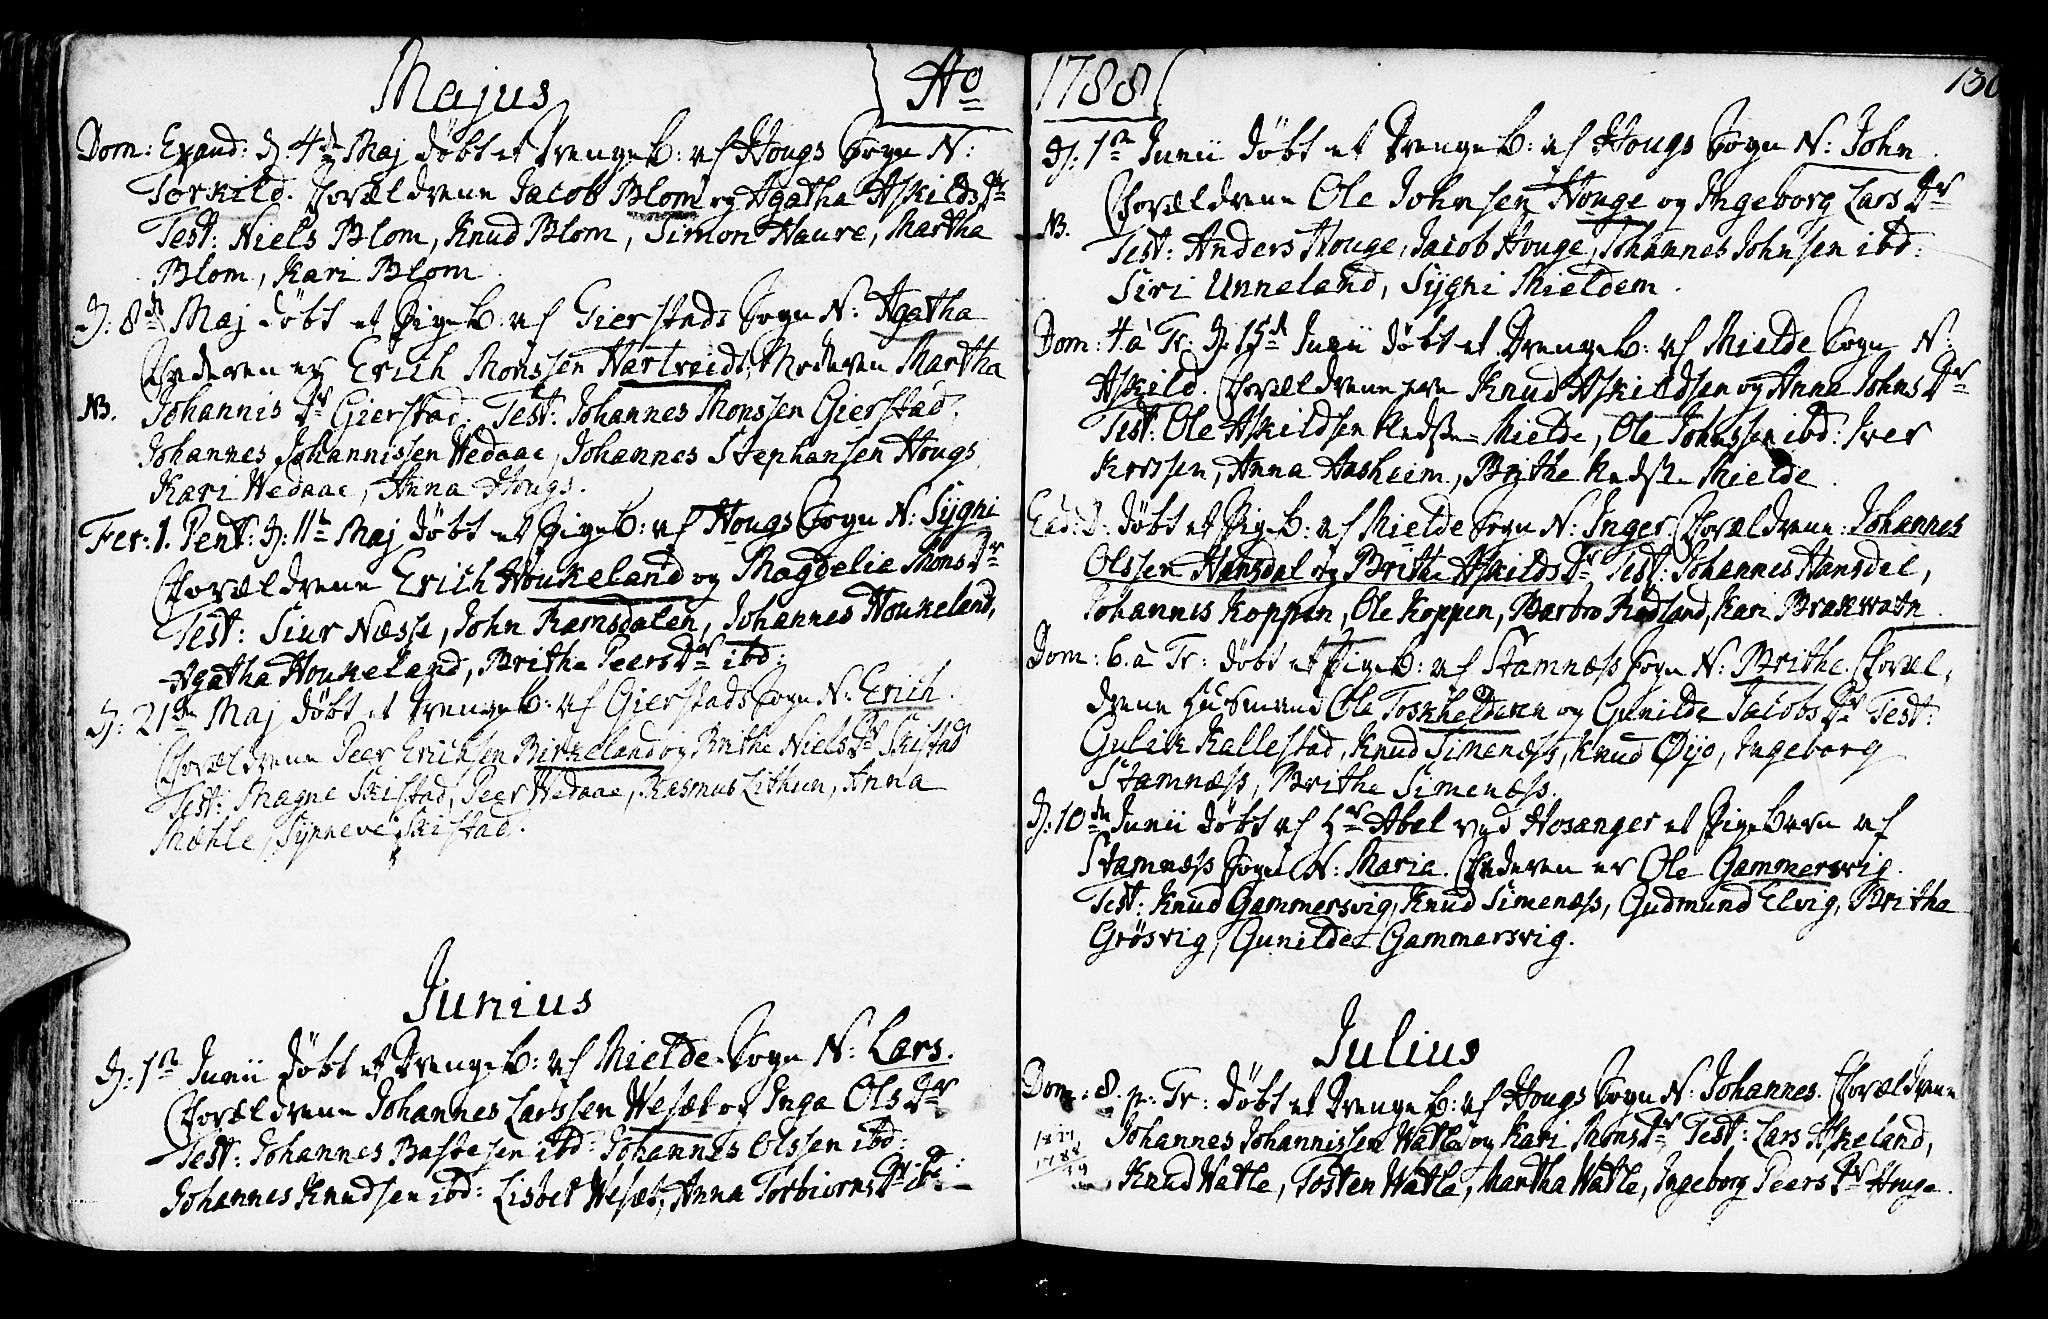 Majus
Ao
Dom: Exaud: D: 4de Maj døbt et Drenge B: af Hougs Sogn N:
Torkild. Forældrene Jacob Blom og Agatha Askilds Dr
Test: Niels Blom, Knud Blom, Simon Haure, Martha
Blom, Kari Blom.
D: 8de Maj døbt et Pige B: af Gierstads Sogn N: Agatha
Faderen er Erich Monssen Hartveidt, Moderen Martha
NB. Johannis Dr Gierstad. Test: Johannes Monssen Gierstad,
Johannes Johannissen Wedaae, Johannes Stephansen Hougs,
Kari Wedaae, Anna Hougs.
Fer: 1. Pent: D: 11te Maj døbt et Pige B: af Hougs Sogn N: Sygni
Forældrene Erich Houkeland og Magdelie Mons Dr
Test: Siur Næsse, John Ramsdalen, Johannes Houkeland,
Agatha Houkeland, Brithe Peers Dr ibd:
D: 21de Maj døbt et Drenge B: af Gierstads Sogn N: Erich.
Forældrene Peer Erichsen Birkeland og Brithe Niels Dr Skistad
Test: Magne Skistad, Peer Wedaae, Rasmus Lithun, Anna
Mæhle, Synneve Skistad.
Junius
D: 1te Junii døbt et Drenge B: af Mielde Sogn N: Lars.
Forældrene Johannes Larssen Wesæt og Inga Ols Dr
Test: Johannes Bastesen ibd: Johannes Olssen ibd:
Johannes Knudsen ibd: Lisbet Wesæt, Anna Torbiorns Dr ibd:
1788
D: 1te Junii døbt et Drenge B: af Hougs Sogn N: John.
Forældrene Ole Johnsen Houge og Ingeborg Lars Dr
NB. Test: Anders Houge, Jacob Houge, Johannes Johnsen ibd:
Siri Unneland, Sygni Mieldem.
Dom: 4 à Tr: D: 15de Junii døbt et Drenge B: af Mielde Sogn N:
Askild. Forældrene ere Knud Askildsen og Anna Johns Dr
Test: Ole Askildsen Mielde, Ole Johnssen ibd: Iver
Anna Aasheim, Brithe Mielde.
Eod: D: døbt et Pige B: af Mielde Sogn N: Inger. Forældrene: Johannes
Olssen Hansdal og Brithe Askilds Dr Test: Johannes Hansdal,
Johannes Koppen, Ole Koppen, Barbro Rødland, Kari Brakvatn.
Dom: 6. à Tr: døbt et Pige B: af Stamnæss Sogn N: Brithe. Foræl-
drene Husmand Ole Toskhelderen og Gunilde Jacobs Dr Test:
Gulak Kallestad, Knud Simenæss, Knud Øyo, Ingeborg
Stamnæss, Brithe Simenæss.
D: 10de Junii døbt af Hr Abel ved Hosanger et Pigebarn af
Stamnæss Sogn N: Maria. Faderen er Ole Gammersvig.
Test: Knud Gammersvig, Knud Simenæss, Gudmund Elvig, Britha
Grøsvig, Gunilde Gammersvig.
Julius
Dom: 8. p: Tr: døbt et Drenge B: af Hougs Sogn N: Johannes. Forældrene
Johannes Johannissen Watle og Kari Mons Dr Test: Lars Askeland,
1788 Knud Watle, Tosten Watle, Martha Watle, Ingeborg Peers Dr Houge.